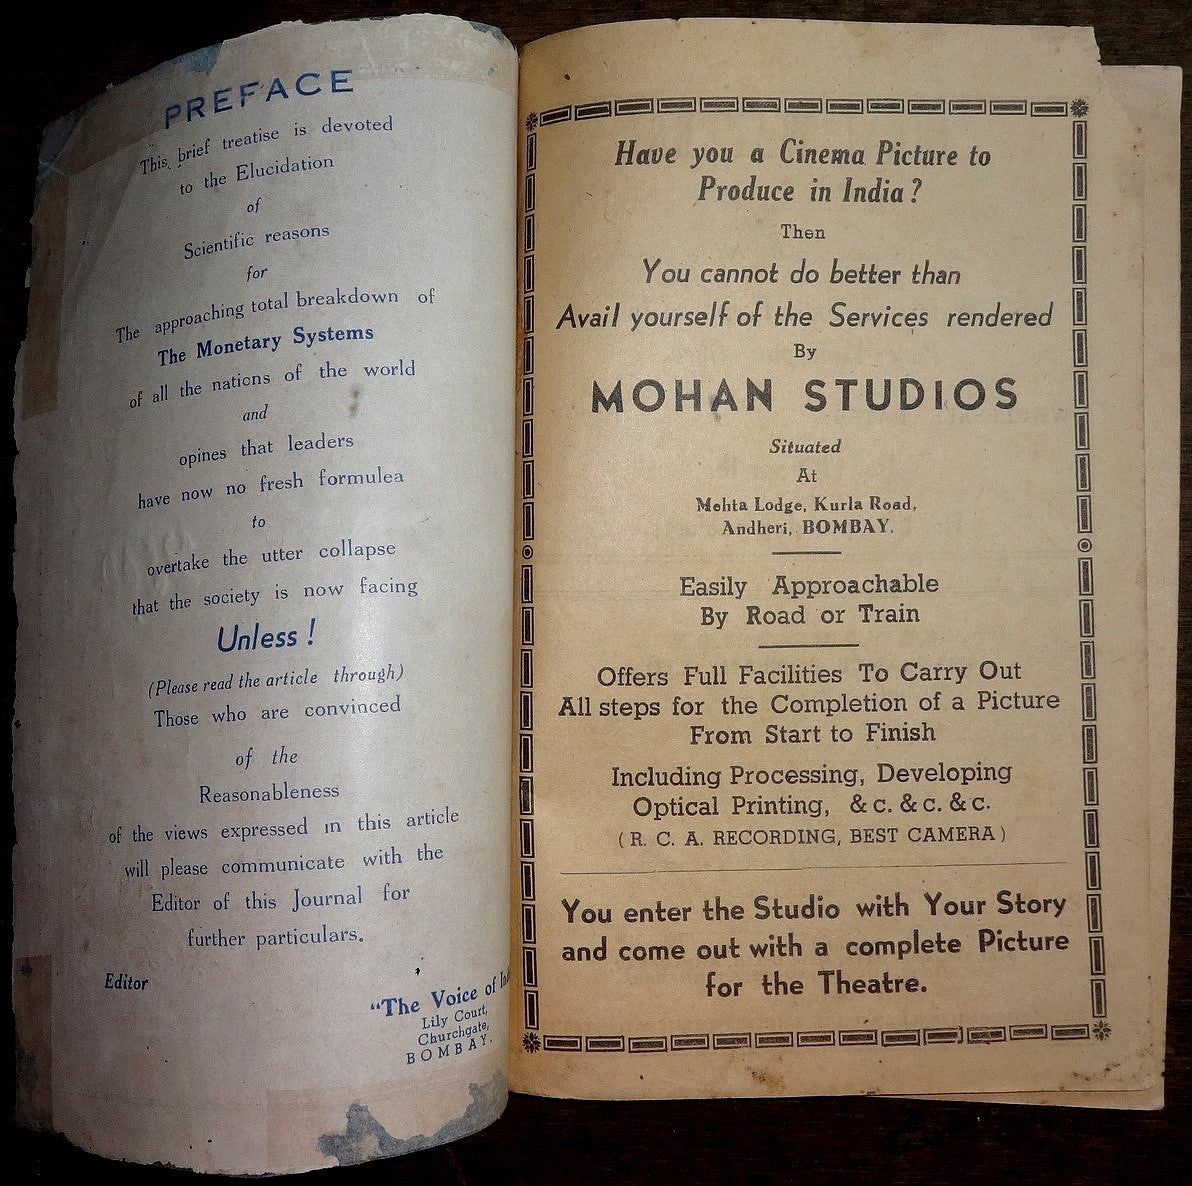 PREFACE
This brief treatise is devoted
to the Elucidation
of
Scientific reasons
for
The approaching total breakdown of
The Monetary Systems
of all the nations of the world
and
opines that leaders
have now no fresh formulea
to
overtake the utter collapse
that the society is now facing
Unless !
(Please read the article through)
Those who are convinced
of the
Reasonableness
of the views expressed in this article
will please communicate with the
Editor of this Journal for
further particulars.
Editor
"The Voice of
Lily Court,
Churchgate,
BOMBAY.
Have you a Cinema Picture to
Produce in India ?
Then
You cannot do better than
Avail yourself of the Services rendered
By
MOHAN STUDIOS
Situated
At
Mehta Lodge, Kurla Road,
Andheri, BOMBAY.
Easily Approachable
By Road or Train
Offers Full Facilities To Carry Out
All steps for the Completion of a Picture
From Start to Finish
Including Processing, Developing
Optical Printing, & c. & c. & c.
( R. C. A. RECORDING, BEST CAMERA )
You enter the Studio with Your Story
and come out with a complete Picture
for the Theatre.